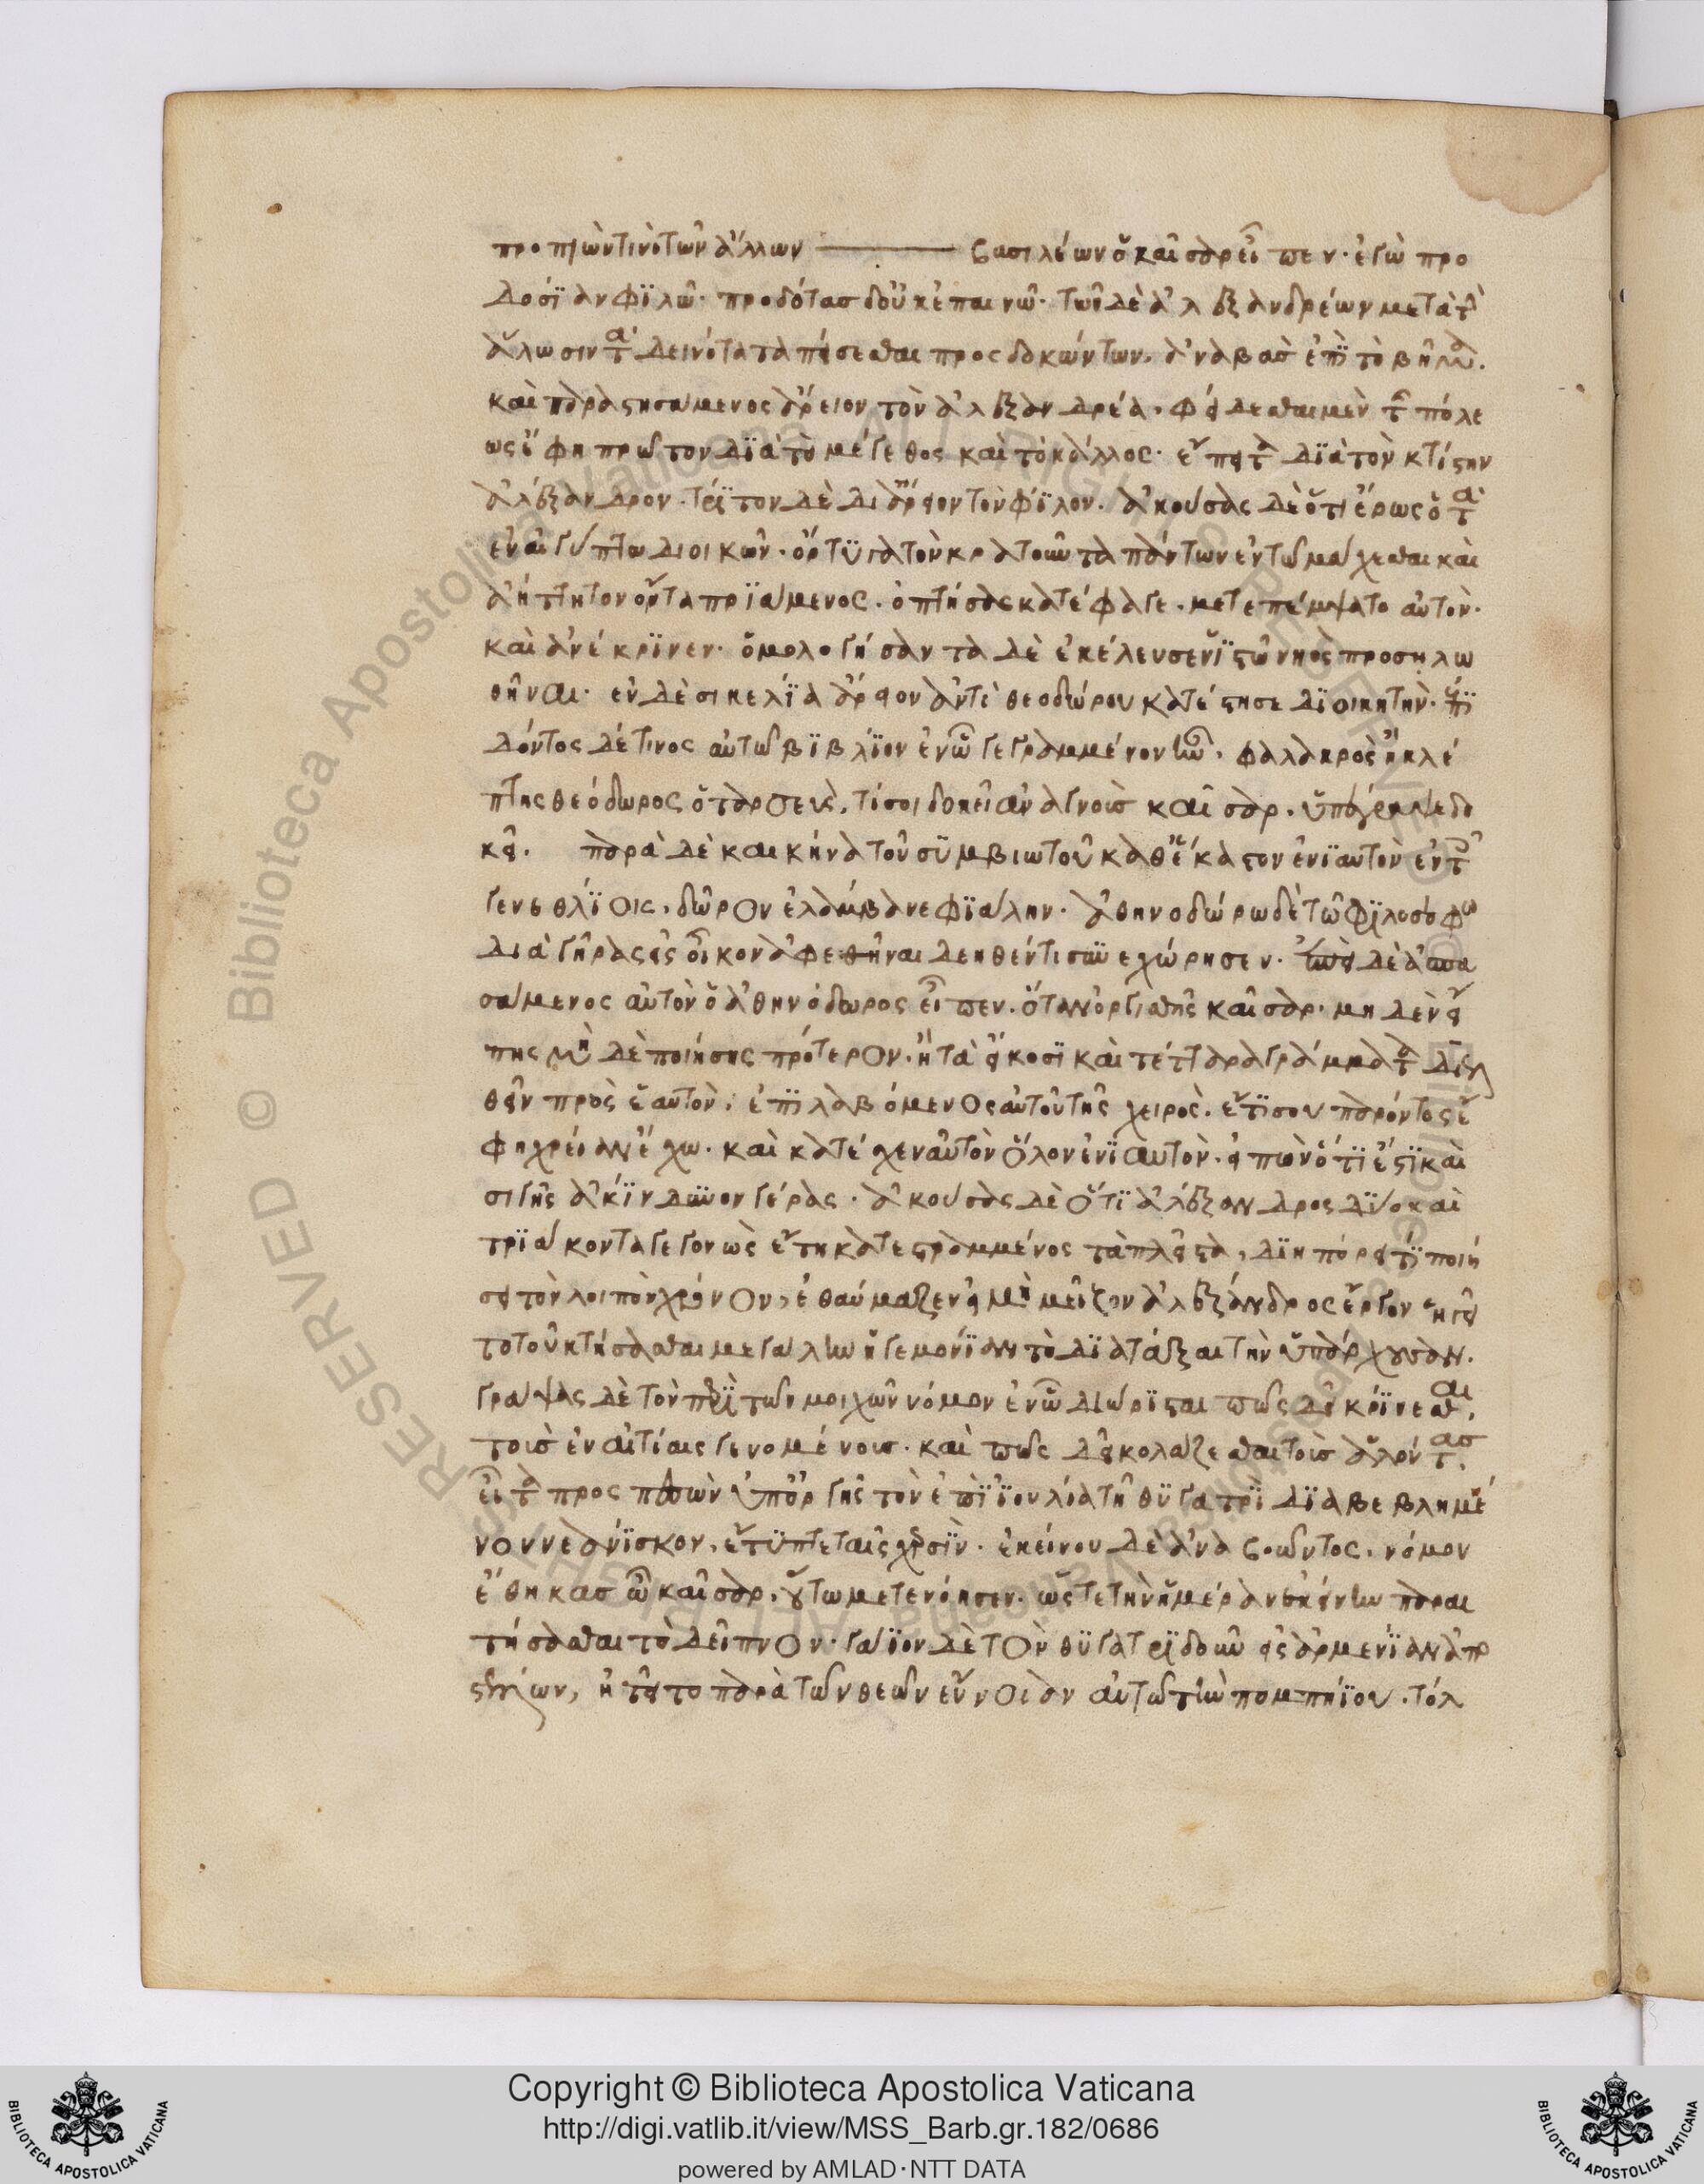 προπιὼν τινὶ τῶν ἄλλων ——— βασιλέων ὁ καῖσαρ εἶπεν· ἐγὼ προ
δοσίαν φιλῶ· προδότας δ' οὐκ ἐπαινῶ· τῶν δὲ ἀλεξανδρέων μετὰ τὴν
ἅλωσιν τὰ δεινότατα πείσεσθαι προσδοκώντων, ἀναβὰς ἐπὶ τὸ βῆμα.
καὶ παραστησάμενος ἄρειον τὸν ἀλεξανδρέα, φείδεσθαι μὲν τῆς πόλε
ως ἔφη πρῶτον διὰ τὸ μέγεθος καὶ τὸ κάλλος· ἔπειτα διὰ τὸν κτίστην
ἀλέξανδρον· τρίτον δὲ δι' ἄρειον τὸν φίλον. ἀκούσας δὲ ὅτι ἔρως ὁ τὰ
ἐν αἰγύπτω διοικῶν· ὄρτυγα τὸν κρατοῦντα πάντων ἐν τῶ μάχεσθαι καὶ
ἀήττητον ὄντα πριάμενος. ὀπτήσας κατέφαγε. μετεπέμψατο αὐτὸν.
καὶ ἀνέκρινεν· ὁμολογήσαντα δὲ ἐκέλευσεν ἱστῶ νηὸς προσηλω
θῆναι· ἐν δὲ σικελία ἄρειον ἀντὶ θεοδώρου κατέστησε διοικητὴν· ἐπι
δόντος δέ τινος αὐτῶ βιβλίον ἐν ὧ γεγραμμένον ἦν, φαλακρὸς ἢ κλέ
πτης θεόδωρος ὁ ταρσεὺς, τί σοι δοκεῖ ἀναγνοὺς καῖσαρ. ὑπέγραψε δο
κεῖ. παρὰ δὲ καικήνα τοῦ συμβιωτοῦ καθ' ἕκαστον ἐνιαυτὸν ἐν τοῖς
γενεθλίοις, δῶρον ἐλάμβανε φιάλην· ἀθηνοδώρω δὲ τῶ φιλοσόφω
διὰ γῆρας εἰς οἶκον ἀφεθῆναι δεηθέντι συνεχώρησεν. ἐπεὶ δὲ ἀσπα
σάμενος αὐτὸν ὁ ἀθηνόδωρος εἶπεν. ὅταν ὀργισθῆς καῖσαρ· μηδὲν εἴ
πης μηδὲ ποιήσης πρότερον. ἢ τὰ εἴκοσι καὶ τέτταρα γράμματα διελ
θεῖν πρὸς ἑαυτὸν, ἐπιλαβόμενος αὐτοῦ τῆς χειρὸς. ἔτι σου παρόντος ἔ
φη χρείαν ἔχω. καὶ κατέσχεν αὐτὸν ὅλον ἐνιαυτὸν. εἰπὼν ὅτι ἔστι καὶ
σιγῆς ἀκίνδυνον γέρας. ἀκούσας δὲ ὅτι ἀλέξανδρος δύο καὶ
τριάκοντα γεγονὼς ἔτη κατεστραμμένος τὰ πλεῖστα, διηπόρει τί ποιή
σει τὸν λοιπὸν χρόνον, ἐθαύμαζεν εἰ μὴ μεῖζον ἀλέξανδρος ἔργον ἡγεῖ
το τοῦ κτήσασθαι μεγάλην ἡγεμονίαν τὸ διατάξαι τὴν ὑπάρχουσαν.
γράψας δὲ τὸν περὶ τῶν μοιχῶν νόμον ἐν ὧ διώρισται πῶς δεῖ κρίνεσθαι,
τοὺς ἐν αἰτίαις γενομένους. καὶ πῶς δεῖ κολάζεσθαι τοὺς ἁλόντας.
εἶτα προσπεσὼν ὑπ' ὀργῆς τὸν ἐπὶ ἰουλία τῆ θυγατρὶ διαβεβλημέ
νον νεανίσκον, ἔτυπτε ταῖς χερσὶν. ἐκείνου δὲ ἀναβοῶντος. νόμον
ἔθηκας ὦ καῖσαρ, οὕτω μετενόησεν. ὥστε τὴν ἡμέραν ἐκείνην παραι
τήσασθαι τὸ δεῖπνον. γάϊον δὲ τὸν θυγατριδοῦν εἰς ἀρμενίαν ἀπο
στέλλων, ἠτεῖτο παρὰ τῶν θεῶν εὔνοιαν αὐτῶ τὴν πομπηίου. τόλ
Copyright © Biblioteca Apostolica Vaticana
http://digi.vatlib.it/view/MSS_Barb.gr.182/0686
powered by AMLAD·NTT DATA